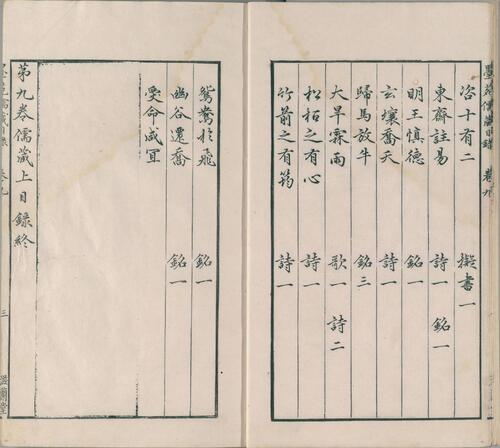 咨十有二 擬書一
東齋註易 詩一 銘一
明王慎德 銘一
玄壤喬夭 詩一
歸馬放牛 銘三
大旱霖雨 歌一 詩二
松栢之有心 詩一
竹箭之有筠 詩一
鴛鴦於飛 銘一
幽谷遷喬 銘一
受命咸宜
第九卷儒藏上目錄終
卷九
三
滋蘭堂